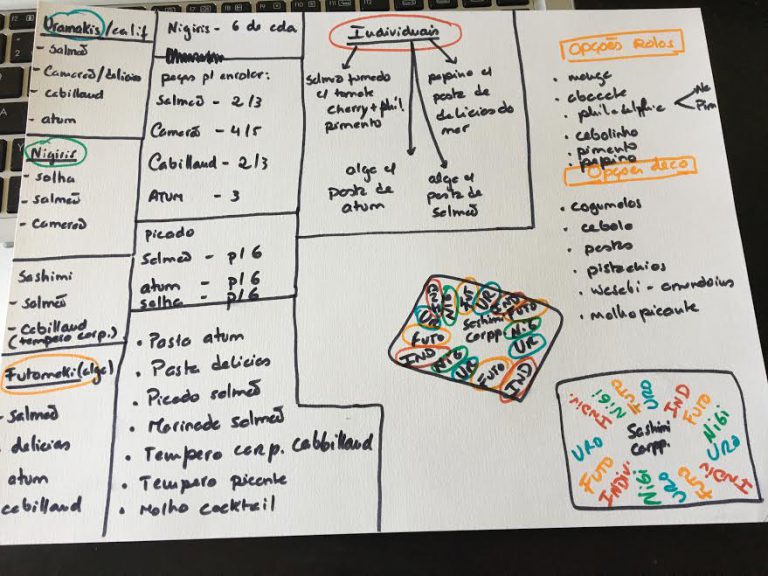 Uramakis/calif
- salmão
- Camarão/delícias
- cabillaud
- atum
Nigiris
- solha
- salmão
- camarão
Sashimi
- salmão
- cabillaud
(tempero carp.)
Futomaki (alga)
- salmão
delícias
atum
cabillaud
Nigiris - 6 de cda
peças p/ enrolar:
Salmão - 2/3
Camarão - 4/5
Cabillaud - 2/3
ATUM - 3
PICADO
Salmão - p/ 6
atum - p/ 6
solha - p/ 6
• Pasta atum
• Pasta delícias
• Picado salmão
• Marinada salmão
• Tempero carp. cabbillaud
• Tempero picante
• Molho cocktail
Individuais
salmão fumado
c/ tomate
cherry + phil.
pimento
pepino c/
pasta de
delícias do
mar
alga c/
pasta de
atum
alga c/
pasta de
salmão
OPÇÕES ROLOS
• manga
• abacate
• philadelphia
• cebolinho
• pimento
• pepino
Opções deco
• cogumelos
• cebola
• pesto
• pistachios
• wasabi - amendoins
• molho picante
IND
NIG
FUT
UR
IND
FUTO
UR
Sashimi
Carpp.
NiG
FUTO
UR
IND
NiG
UR
FUTO
IND
Nigi
FUTO
URO
IND
FUTO
Indivi.
Nigi
URO
Sashimi
Carpp.
URO
FUTO
INDIVI.
Nigi
URO
FUTO
INDIVI